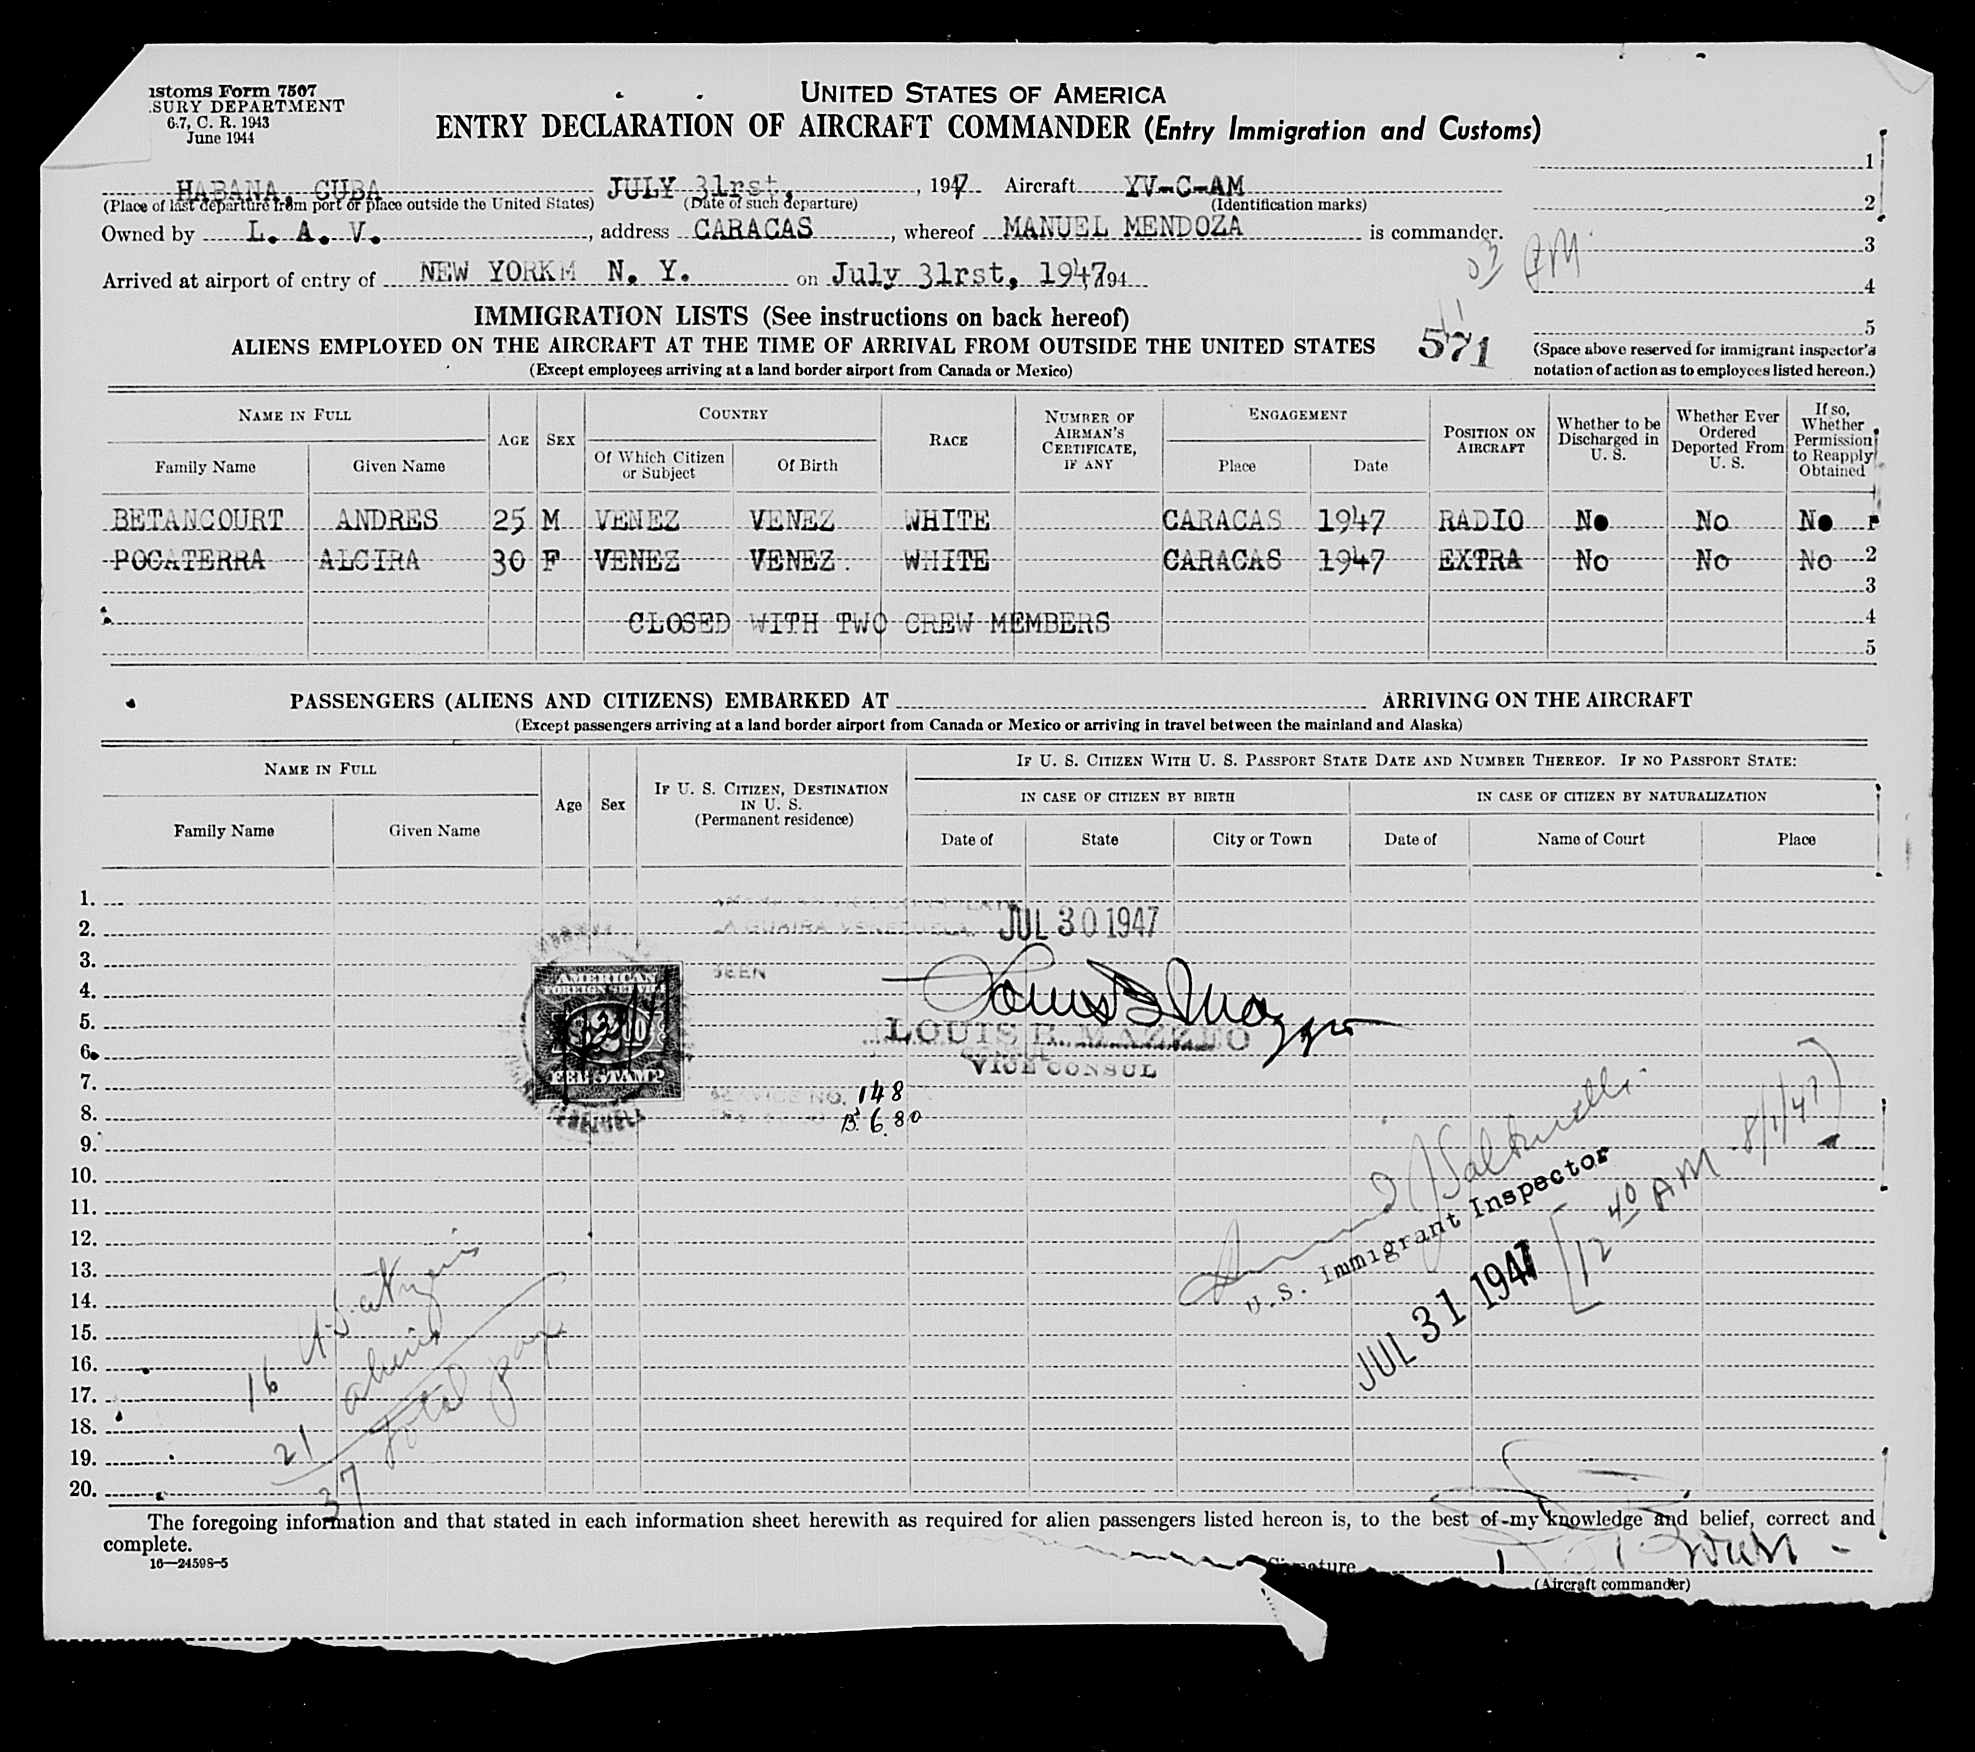 ustoms Form 7507
SURY DEPARTMENT
6.7, C. R. 1943
June 1944
UNITED STATES OF AMERICA
ENTRY DECLARATION OF AIRCRAFT COMMANDER (Entry Immigration and Customs)
HABANA, CUBA JULY 31rst, , 1947 Aircraft YV-C-AM
(Place of last departure from port or place outside the United States) (Date of such departure) (Identification marks)
Owned by L. A. V. , address CARACAS , whereof MANUEL MENDOZA is commander.
Arrived at airport of entry of NEW YORKM N. Y. on July 31rst, 1947, 194
1
2
3
4
5
AM
IMMIGRATION LISTS (See instructions on back hereof)
ALIENS EMPLOYED ON THE AIRCRAFT AT THE TIME OF ARRIVAL FROM OUTSIDE THE UNITED STATES
(Except employees arriving at a land border airport from Canada or Mexico)
571
(Space above reserved for immigrant inspector's
notation of action as to employees listed hereon.)
NAME IN FULL AGE SEX COUNTRY RACE NUMBER OF AIRMAN'S CERTIFICATE, IF ANY ENGAGEMENT POSITION ON AIRCRAFT Whether to be Discharged in U. S. Whether Ever Ordered Deported From U. S. If so, Whether Permission to Reapply Obtained
Family Name Given Name Of Which Citizen or Subject Of Birth Place Date
BETANCOURT ANDRES 25 M VENEZ VENEZ WHITE CARACAS 1947 RADIO No No No
POCATERRA ALCIRA 30 F VENEZ VENEZ. WHITE CARACAS 1947 EXTRA No No No 2
3
CLOSED WITH TWO CREW MEMBERS 4
5
PASSENGERS (ALIENS AND CITIZENS) EMBARKED AT ARRIVING ON THE AIRCRAFT
(Except passengers arriving at a land border airport from Canada or Mexico or arriving in travel between the mainland and Alaska)
NAME IN FULL Age Sex IF U. S. CITIZEN, DESTINATION IN U. S. (Permanent residence) IF U. S. CITIZEN WITH U. S. PASSPORT STATE DATE AND NUMBER THEREOF. IF NO PASSPORT STATE:
IN CASE OF CITIZEN BY BIRTH IN CASE OF CITIZEN BY NATURALIZATION
Family Name Given Name Date of State City or Town Date of Name of Court Place
1.
2. LA GUAIRA VENEZUELA JUL 30 1947
3. SEEN
4.
5.
6.
7.
8.
9.
10.
11.
12.
13.
14.
15.
16.
17.
18.
19.
20.
AMERICAN
FOREIGN SERVICE
FEE STAMP
LOUIS B. MAZZEO
VICE CONSUL
SERVICE NO. 148
B. 6.80
U.S. Immigrant Inspector
JUL 31 1947
[12 40 AM 8/1/47]
16 U.S. citizens
21 aliens
37 total pax
The foregoing information and that stated in each information sheet herewith as required for alien passengers listed hereon is, to the best of my knowledge and belief, correct and
complete.
16—24598-5
Signature
(Aircraft commander)